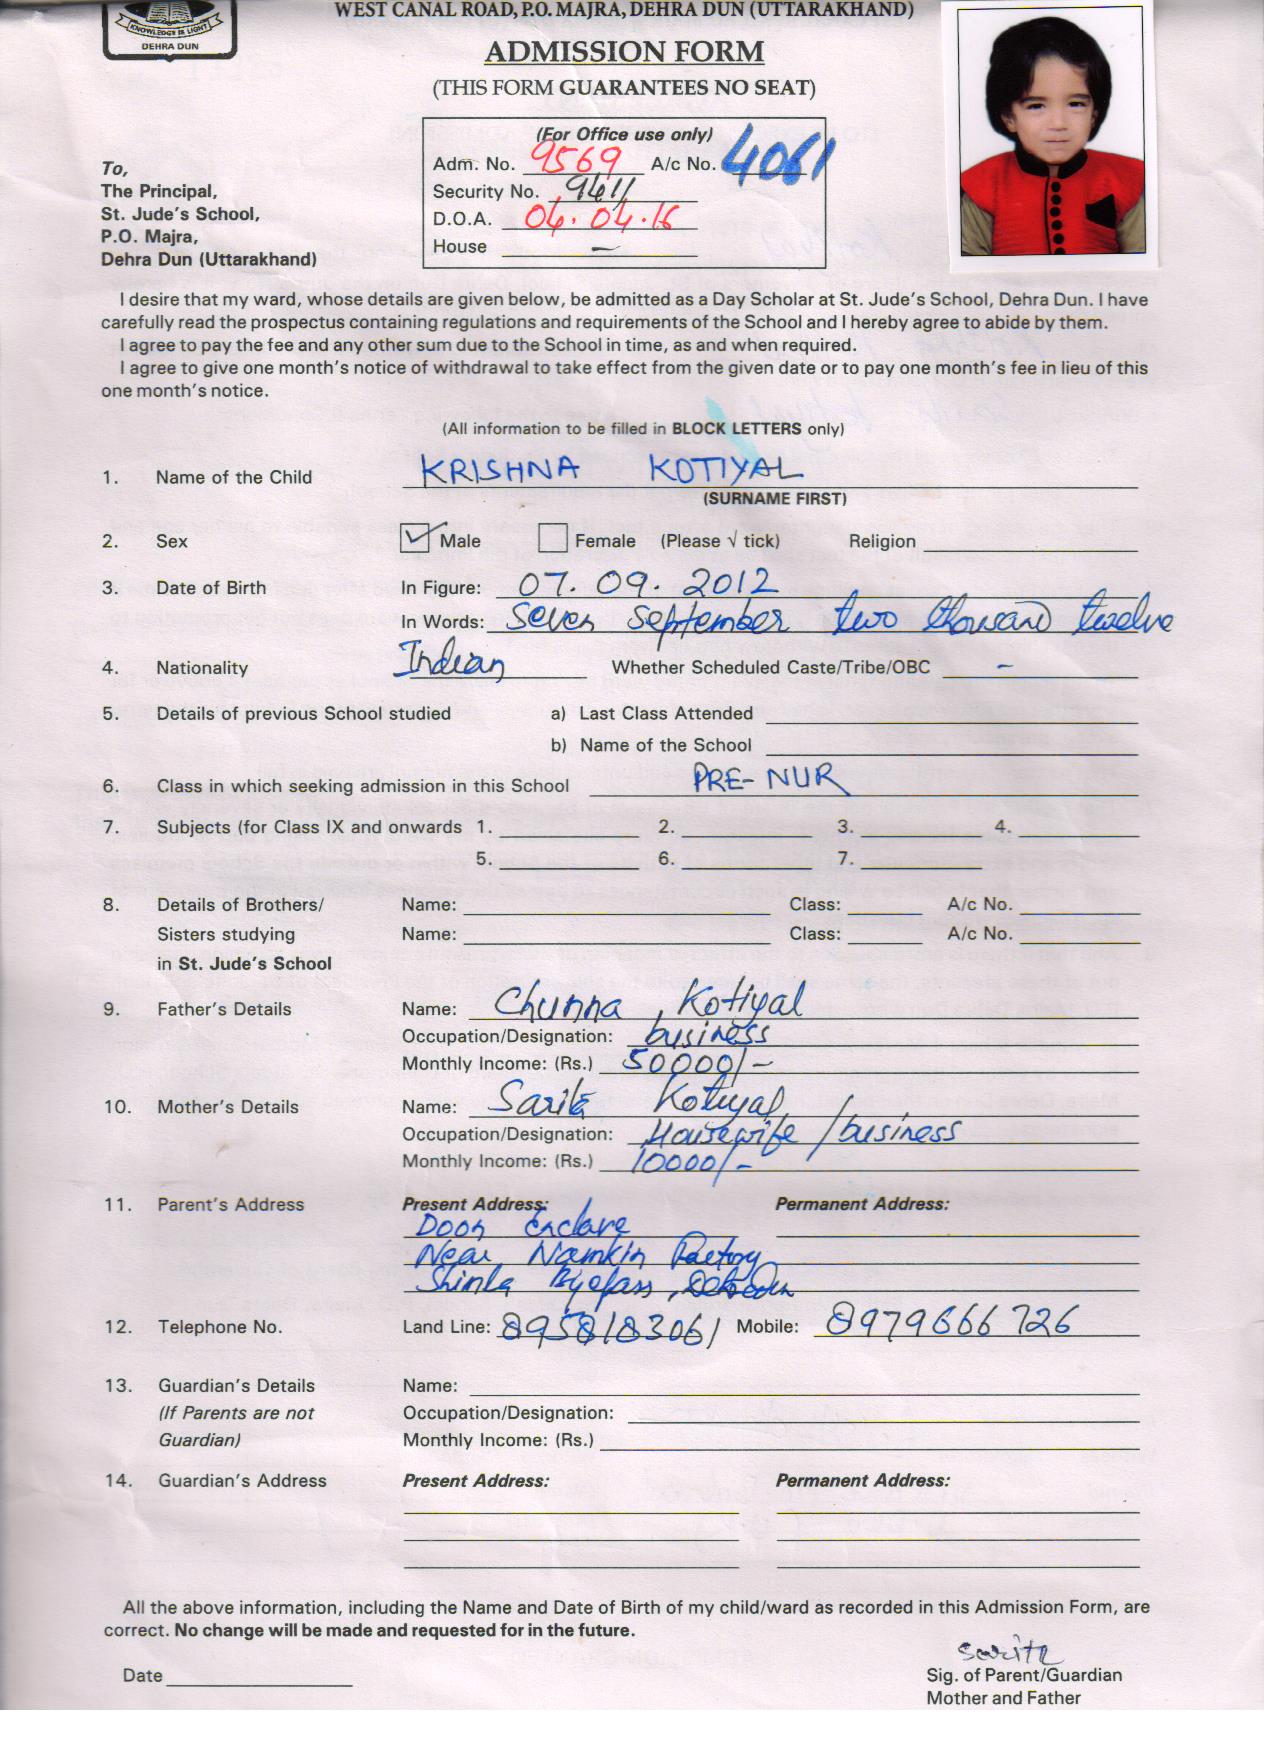 KNOWLEDGE IS LIGHT
DEHRA DUN
WEST CANAL ROAD, P.O. MAJRA, DEHRA DUN (UTTARAKHAND)
ADMISSION FORM
(THIS FORM GUARANTEES NO SEAT)
(For Office use only)
Adm. No. 9569 A/c No. 4061
Security No. 9411
D.O.A. 04.04.16
House —
To,
The Principal,
St. Jude's School,
P.O. Majra,
Dehra Dun (Uttarakhand)
I desire that my ward, whose details are given below, be admitted as a Day Scholar at St. Jude's School, Dehra Dun. I have
carefully read the prospectus containing regulations and requirements of the School and I hereby agree to abide by them.
I agree to pay the fee and any other sum due to the School in time, as and when required.
I agree to give one month's notice of withdrawal to take effect from the given date or to pay one month's fee in lieu of this
one month's notice.
(All information to be filled in BLOCK LETTERS only)
1. Name of the Child KRISHNA KOTIYAL
(SURNAME FIRST)
2. Sex Male Female (Please √ tick) Religion
3. Date of Birth In Figure: 07. 09. 2012
In Words: Seven September two thousand twelve
4. Nationality Indian Whether Scheduled Caste/Tribe/OBC -
5. Details of previous School studied a) Last Class Attended
b) Name of the School
6. Class in which seeking admission in this School PRE-NUR
7. Subjects (for Class IX and onwards 1. 2. 3. 4.
5. 6. 7.
8. Details of Brothers/ Name: Class: A/c No.
Sisters studying Name: Class: A/c No.
in St. Jude's School
9. Father's Details Name: Chunna Kotiyal
Occupation/Designation: business
Monthly Income: (Rs.) 50000/-
10. Mother's Details Name: Sarita Kotiyal
Occupation/Designation: Housewife / business
Monthly Income: (Rs.) 10000/-
11. Parent's Address Present Address: Permanent Address:
Doon Enclave
Near Namkin Factory
Shimla Byepass,
12. Telephone No. Land Line: 8958183061 Mobile: 8979666726
13. Guardian's Details Name:
(If Parents are not Occupation/Designation:
Guardian) Monthly Income: (Rs.)
14. Guardian's Address Present Address: Permanent Address:
All the above information, including the Name and Date of Birth of my child/ward as recorded in this Admission Form, are
correct. No change will be made and requested for in the future.
Sarita
Date Sig. of Parent/Guardian
Mother and Father